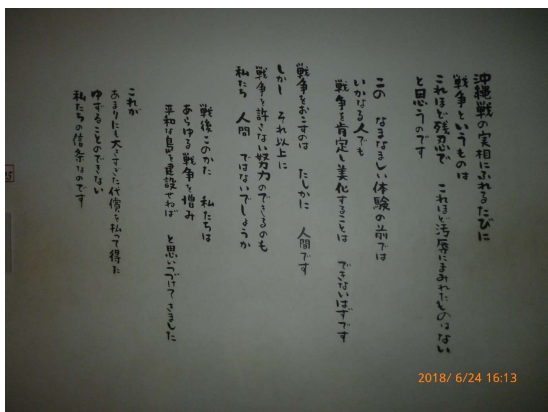 沖縄戦の実相にふれるたびに
戦争というものは
これほど残忍で これほど汚辱にまみれたものはない
と思うのです
この なまなましい体験の前では
いかなる人でも
戦争を肯定し美化することは できないはずです
戦争をおこすのは たしかに 人間です
しかし それ以上に
戦争を許さない努力のできるのも
私たち 人間 ではないでしょうか
戦後このかた 私たちは
あらゆる戦争を憎み
平和な島を建設せねば と思いつづけてきました
これが
あまりにも大きすぎた代償を払って得た
ゆずることのできない
私たちの信条なのです
2018/ 6/24 16:13